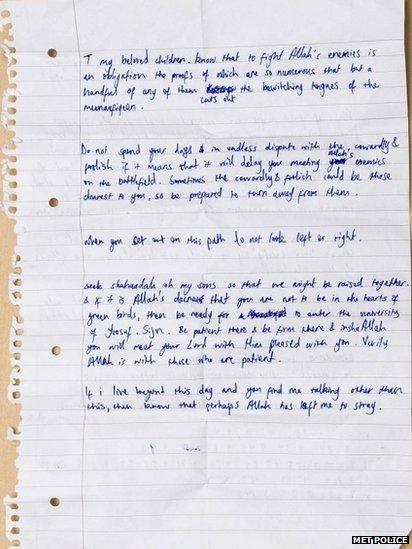 my beloved children know that to fight Allah's enemies is
an obligation the proofs of which are so numerous that but a
handful of any of them the bewitching tongues of the
cuts out
munaafiqeen.
Do not spend your days in endless dispute with the cowardly &
foolish if it means that it will delay you meeting Allah's enemies
on the battlefield. Sometimes the cowardly & foolish could be those
dearest to you, so be prepared to turn away from them.
when you set out on this path do not look left or right.
seek shahaadala oh my sons so that we might be raised together.
& if it is Allah's decree that you are not to be in the hearts of
green birds, then be ready for to enter the university
of Yoosuf. Sijn. Be patient there & be firm there & inshaAllah
you will meet your Lord with Him pleased with you. Verily
Allah is with those who are patient.
If i live beyond this day and you find me talking other than
this, then know that perhaps Allah has left me to stray.
MET POLICE